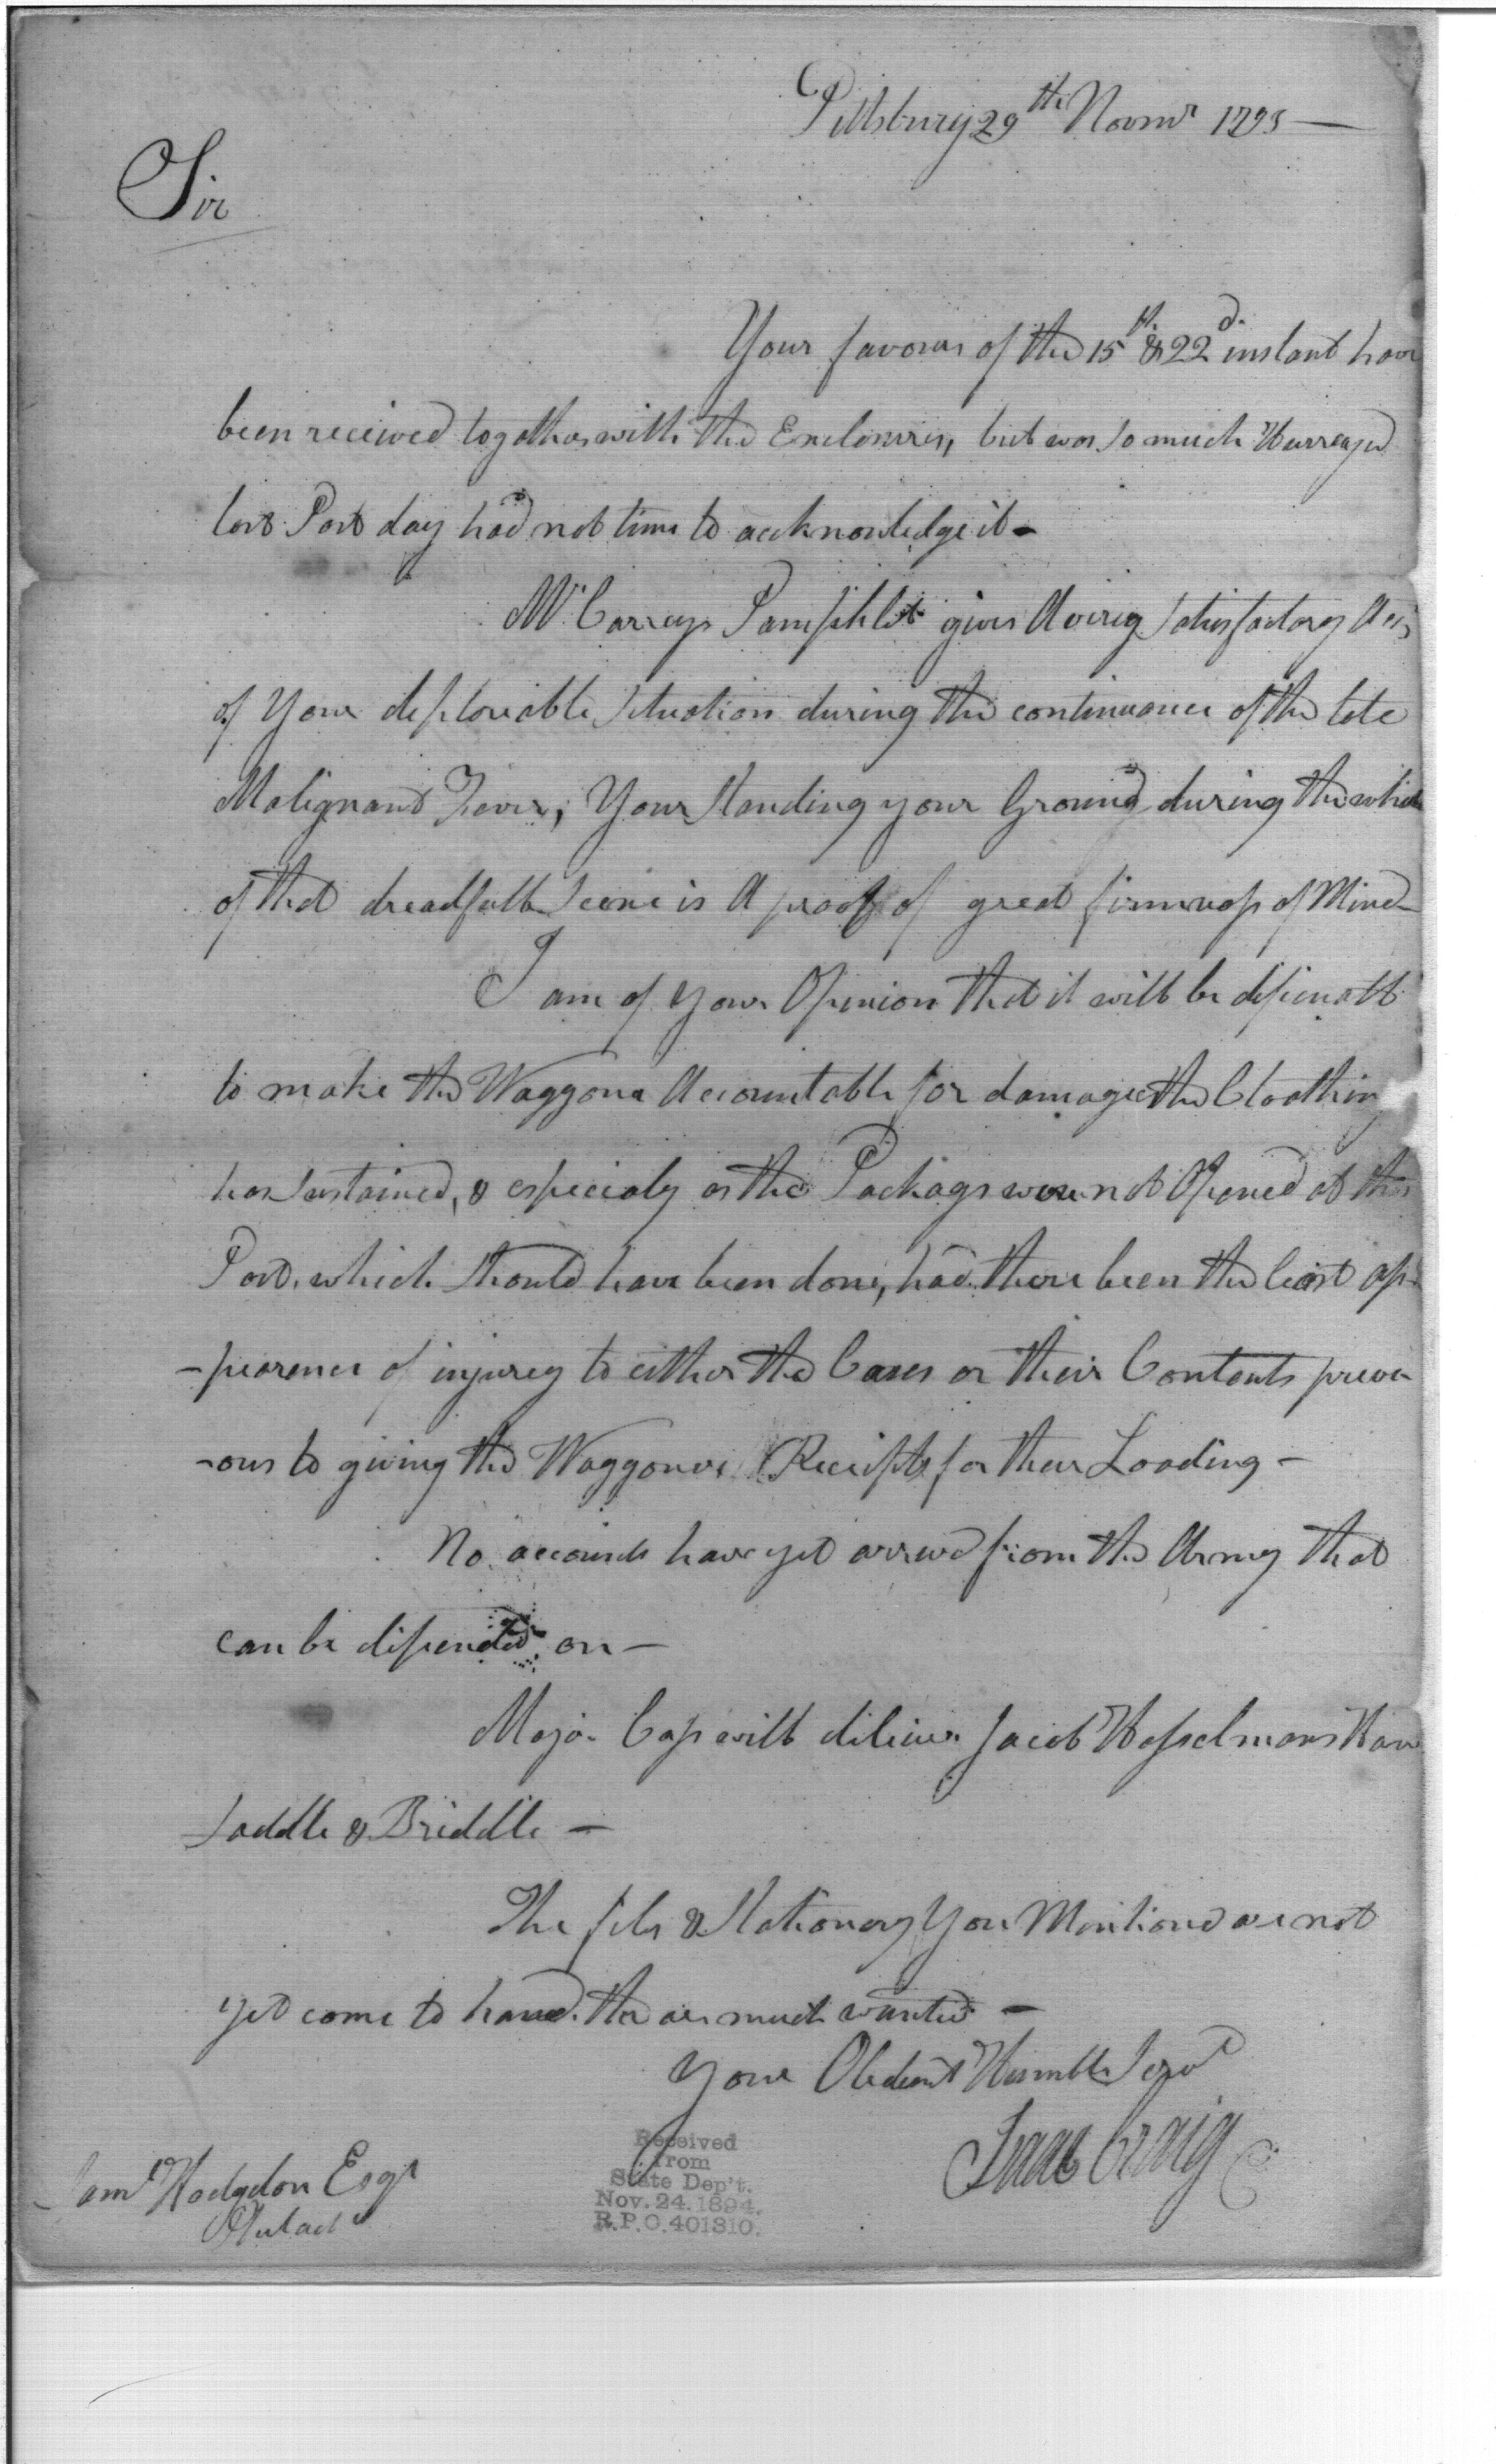 Pittsburg 29th Novmr 1793 —
Sir
Your favours of the 15th & 22d instant have
been received together with the Enclosures, but was so much Harrased
last Post day had not time to acknowledge it -
Mr Careys Pamphlet gives A verry satisfactory
of Your deploriable situation during the continuance of the late
Malignant Fever, Your standing your Ground during the whole
of that dreadfull scene is A proof of great firmness of Mind
I am of your Opinion that it will be dificualt
to make the Waggoner Accountable for damages the Cloathin
has sustained, & especialy as the Packags were not Opened at this
Post, which should have been done, had there been the least ap-
-pearance of injurey to either the Cases or their Contents previ
-ous to giving the Waggoners Receipts for their Loading -
No accounts have yet arrived from the Army that
can be depended on -
Major Cass will deliver Jacob Hesselmans
Saddle & Briddle -
The files & Stationary You Mentioned are not
yet come to hand. the are much wanted -
Your Obedient Humble Servt
Isaac Craig
Saml Hodgdon Esqr
Philada
Received
from
State Dep't.
Nov. 24. 1894.
R.P.O. 401310.